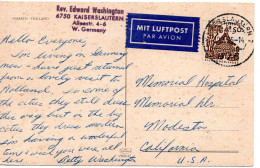 Rev. Edward Washington
6750 KAISERSLAUTERN
Alleestr. 4-6
W. Germany
MIT LUFTPOST
PAR AVION
Hello Everyone,
I'm living in Germany
now and just returned
from a lovely visit to
Holland. In some of
the cities they still dress
this way but in the big
cities they dress modern
I'm having a wonderful
time
Betty Washington
Memorial Hospital
Memorial
Modesto
California
U.S.A.